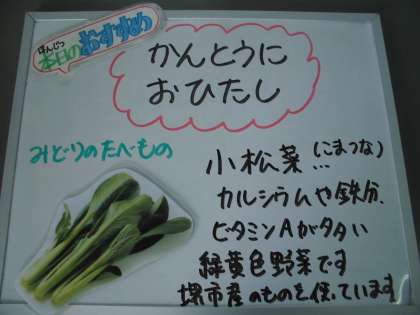 ほんじつ
本日のおすすめ
かんとうに
おひたし
みどりのたべもの
小松菜(こまつな)
...
カルシウムや鉄分、
ビタミンAが多い
緑黄色野菜です
堺市産のものを使っています